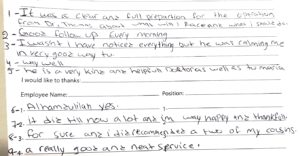 1 - It was a clear and full preparation for the operation
from Dr. Thomas about what will I face and what I should do.
2 - Good follow up Every morning
3 - I wasn't I have noticed everything but he was calming me
in very good way to
4 - very well
5 - he is a very kind and helpful Doctor as well as to
I would like to thanks:
Employee Name: Position:
6-1. Alhamdulilah yes.
7-2. it did till now alot and im way happy and thankful
8-3. for sure and i did recommended a two of my cousins.
9-4. a really good and neat service.